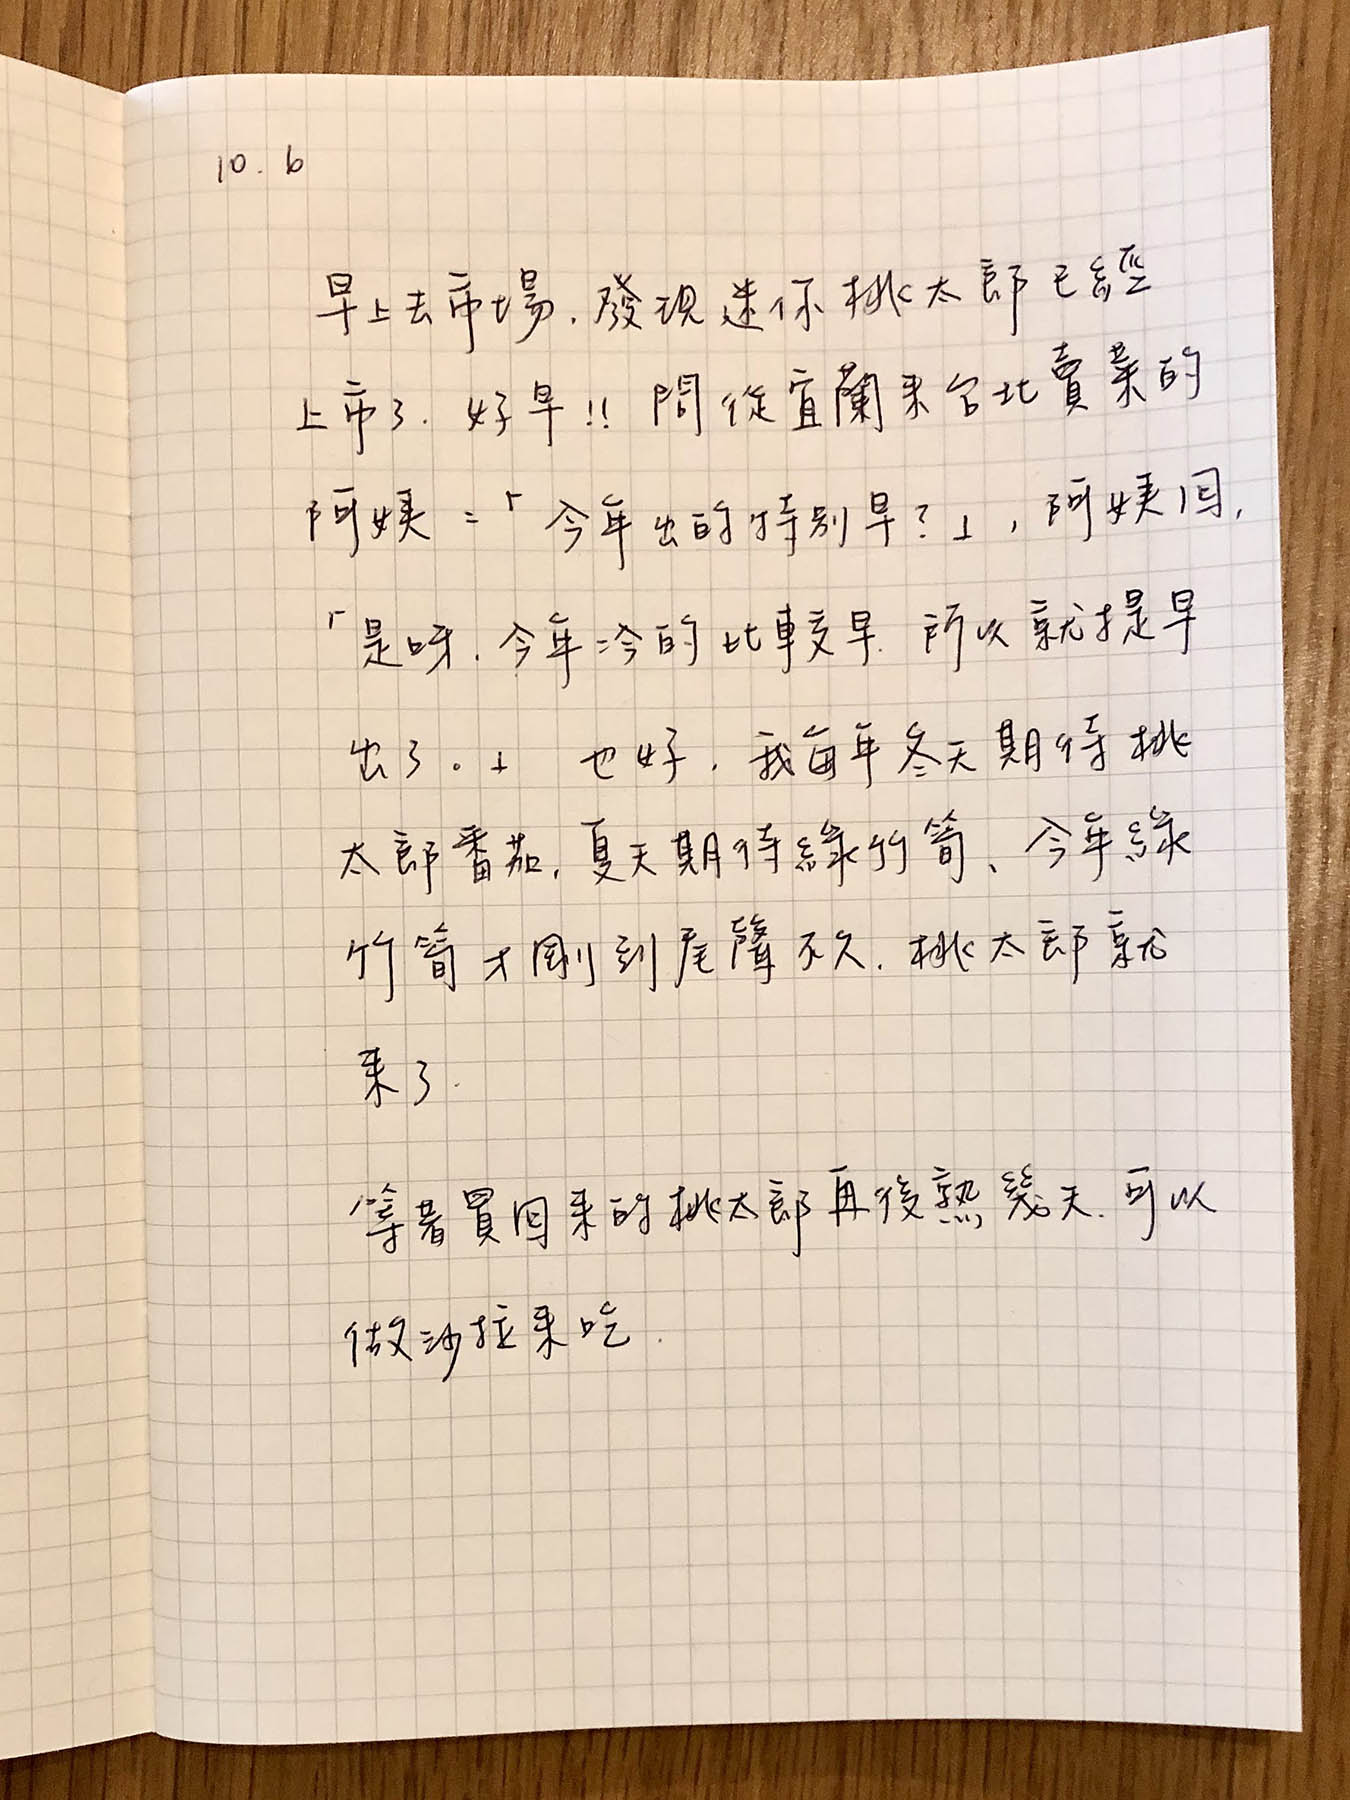 10.6
早上去市場.發現迷你桃太郎已經
上市了.好早!!問從宜蘭來台北賣菜的
阿姨:「今年出的特別早?」,阿姨回,
「是呀.今年冷的比較早.所以就提早
出了。」也好,我每年冬天期待桃
太郎番茄,夏天期待綠竹筍、今年綠
竹筍才剛到尾聲不久.桃太郎就
來了.
等著買回來的桃太郎再後熟幾天.可以
做沙拉來吃.